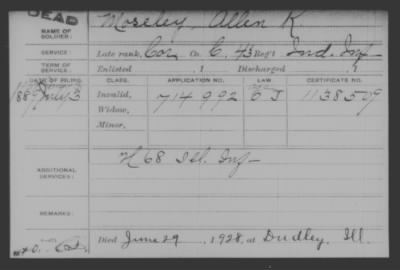 DEAD
NAME OF SOLDIER: Moseley, Allen K
SERVICE: Late rank, Cor Co. C, 43 Reg't Ind. Inf
TERM OF SERVICE: Enlisted , 1 Discharged , 1
DATE OF FILING. CLASS. APPLICATION NO. LAW CERTIFICATE NO.
188 July 3 Invalid, 714992 C J 1138579
Widow,
Minor,
ADDITIONAL SERVICES: H 68 Ill. Inf
REMARKS:
Died June 29, 1928, at Dudley, Ill.